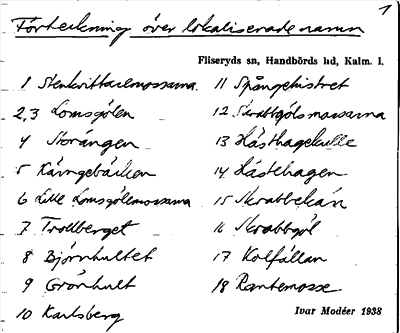 1
Förteckning över lokaliserade namn
Fliseryds sn, Handbörds hd, Kalm. l.
1 Stenkvittaremossarna
2,3 Lomsgölen
4 Storängen
5 Kärngebäcken
6 Lille Lomsgölemossarna
7 Trollberget
8 Björnhultet
9 Grönhult
10 Karlsberg
11 Spångehistret
12 Skrabbgölsmossarna
13 Hästhagekulle
14 Hästehagen
15 Skrabbekån
16 Skrabbgöl
17 Kolfällan
18 Rantemosse
Ivar Modéer 1938